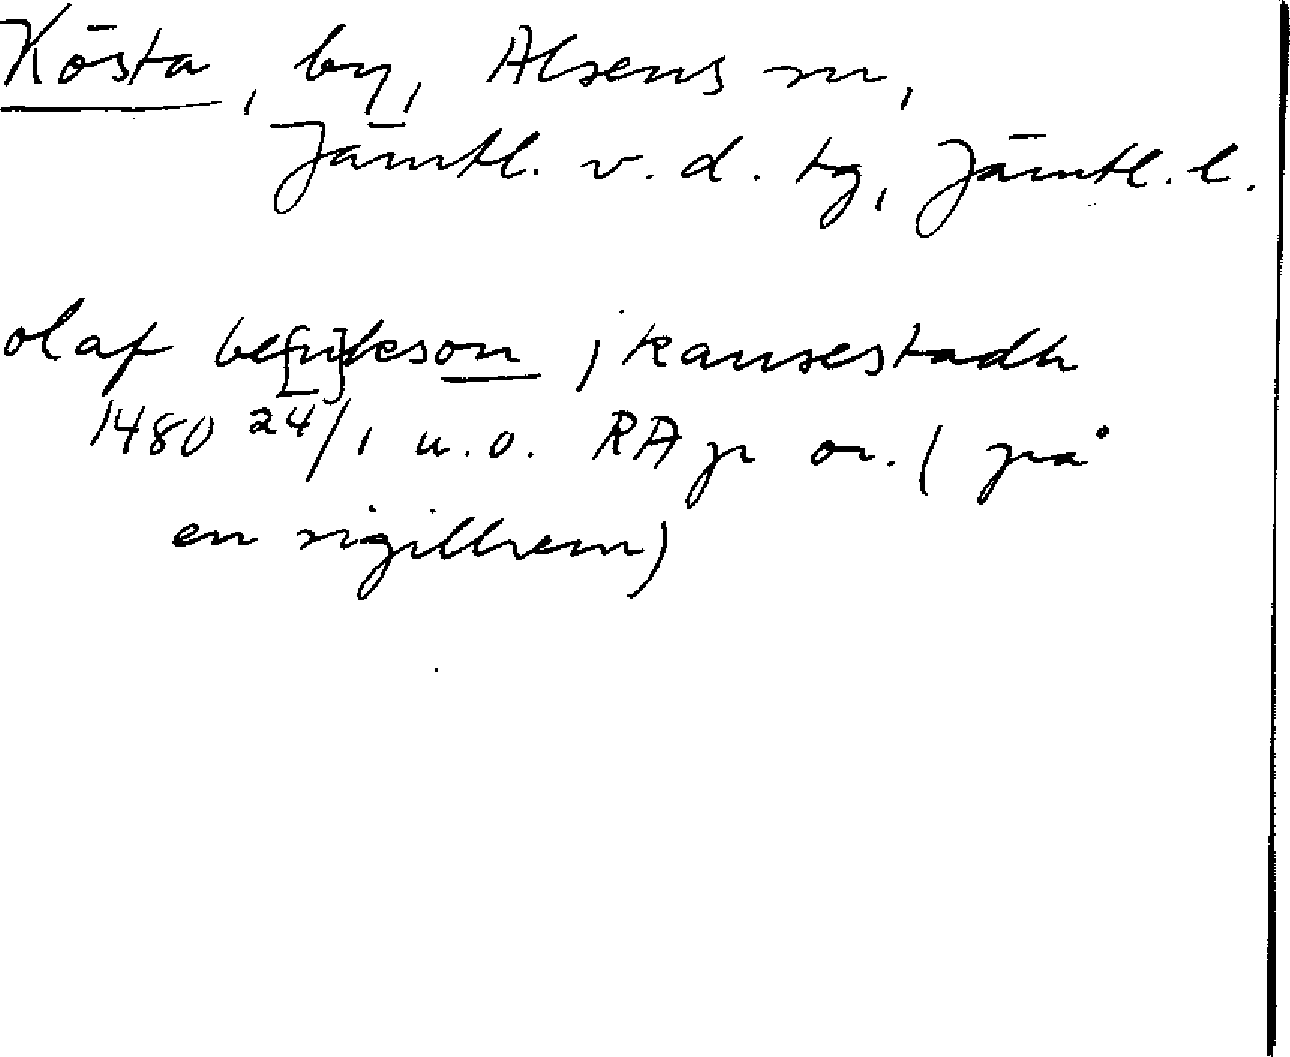 Kösta, by, Alsens sn,
Jämtl. v. d. tg, Jämtl. l.
olaf be[n]keson j kansestadh
1480 24/1 u.o. RA p or. (på
en sigillrem)